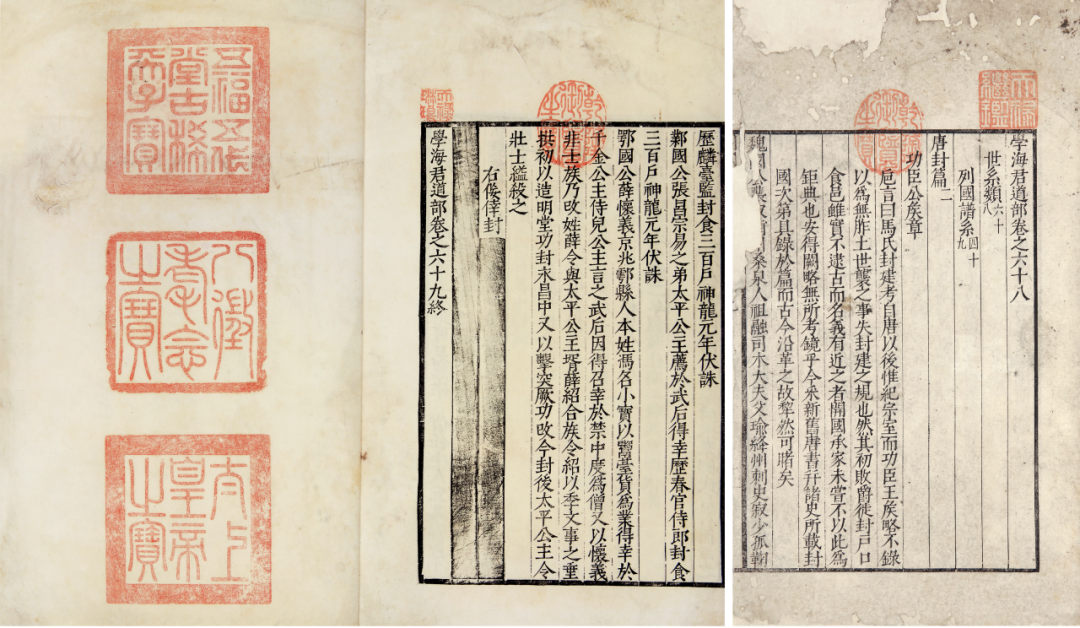 天祿繼鑑
乾隆御覽之寶
學海君道部卷之六十八
世系類六十八
列國譜系四十九
唐封篇二
功臣公矦章
卮言曰馬氏封建考自唐以後惟紀宗室而功臣王矦略不錄
以爲無胙土世襲之事失封建之規也然其初敗爵徙封戶口
食邑雖實不逮古而名義有近之者開國承家未嘗不以此爲
鉅典也安得闕略無所考鏡乎今采新舊唐書幷諸史所載封
國次第具錄於篇而古今沿革之故犂然可睹矣
魏國公裴寂桑泉人祖融司木大夫父瑜絳州刺史寂少孤
乾隆御覽之寶
天祿琳琅
歷麟臺監封食三百戶神龍元年伏誅
鄴國公張昌宗易之弟太平公主薦於武后得幸歷春官侍郎封食
三百戶神龍元年伏誅
鄂國公薛懷義京兆鄠縣人本姓馮名小寶以鬻臺貨爲業得幸於
千金公主侍兒公主言之武后因得召幸於禁中度爲僧又以懷義
非士族乃改姓薛令與太平公主壻薛紹合族令紹以季父事之垂
拱初以造明堂功封永昌中又以擊突厥功改今封後太平公主令
壯士縊殺之
右倿倖封
學海君道部卷之六十九終
五福五代堂古稀天子寶
八徵耄念之寶
太上皇帝之寶